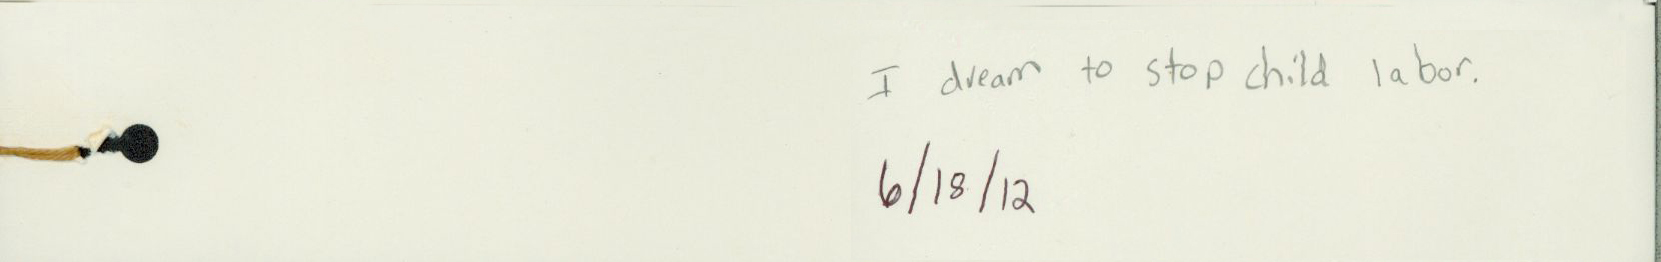 I dream to stop child labor.
6/18/12